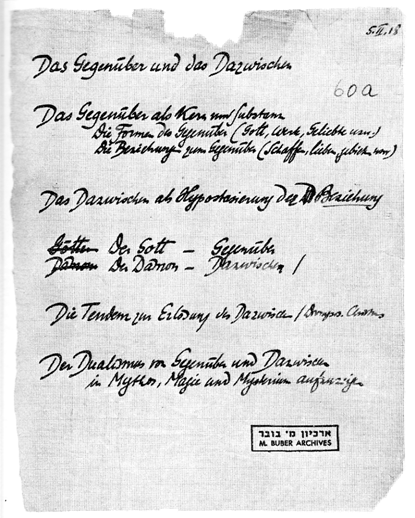 5.II.18
Das Gegenüber und das Dazwischen
60a
Das Gegenüber als Kern und Substanz
Die Formen des Gegenüber (Gott, Werk, Geliebte usw.)
Die Beziehung zum Gegenüber (Schaffen, lieben, gebieten usw)
Das Dazwischen als Hypostasierung der Beziehung
Götter Der Gott – Gegenüber
Dämon Der Dämon – Dazwischen /
Die Tendenz zur Erlösung des Dazwischen /
Der Dualismus von Gegenüber und Dazwischen
in Mythos, Magie und Mysterium aufzuzeigen
ארכיון מ׳ בובר
M. BUBER ARCHIVES